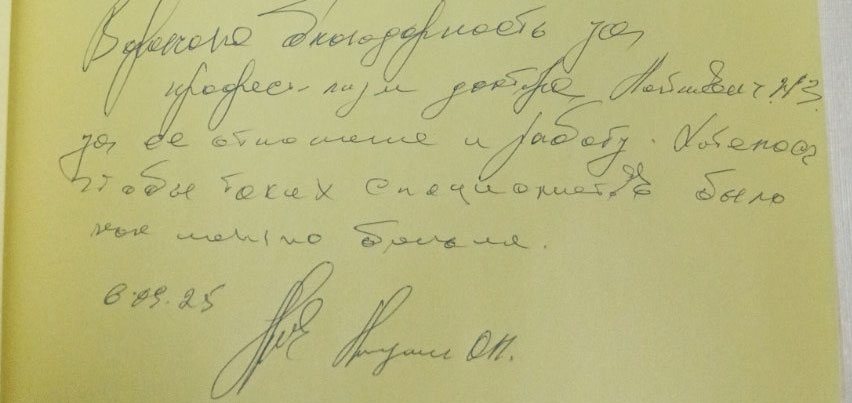 Выражаю благодарность за
професс-лизм доктора
за ее отношение и работу. Хотелось
чтобы таких специалистов было
как можно больше.
6.09.25
О.Н.